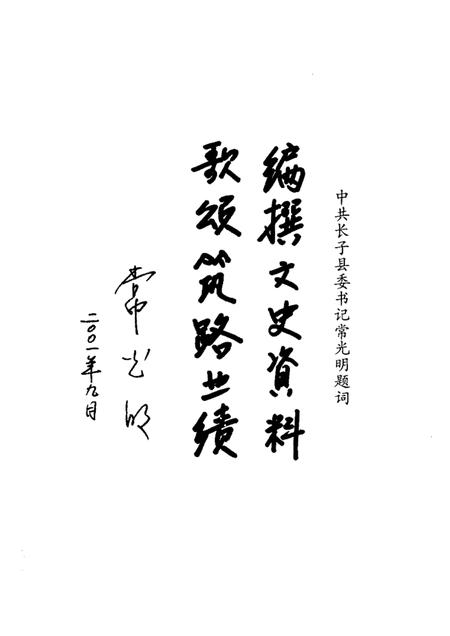 中共长子县委书记常光明题词
编撰文史資料
歌颂筑路业绩
常光明
二〇〇一年九月